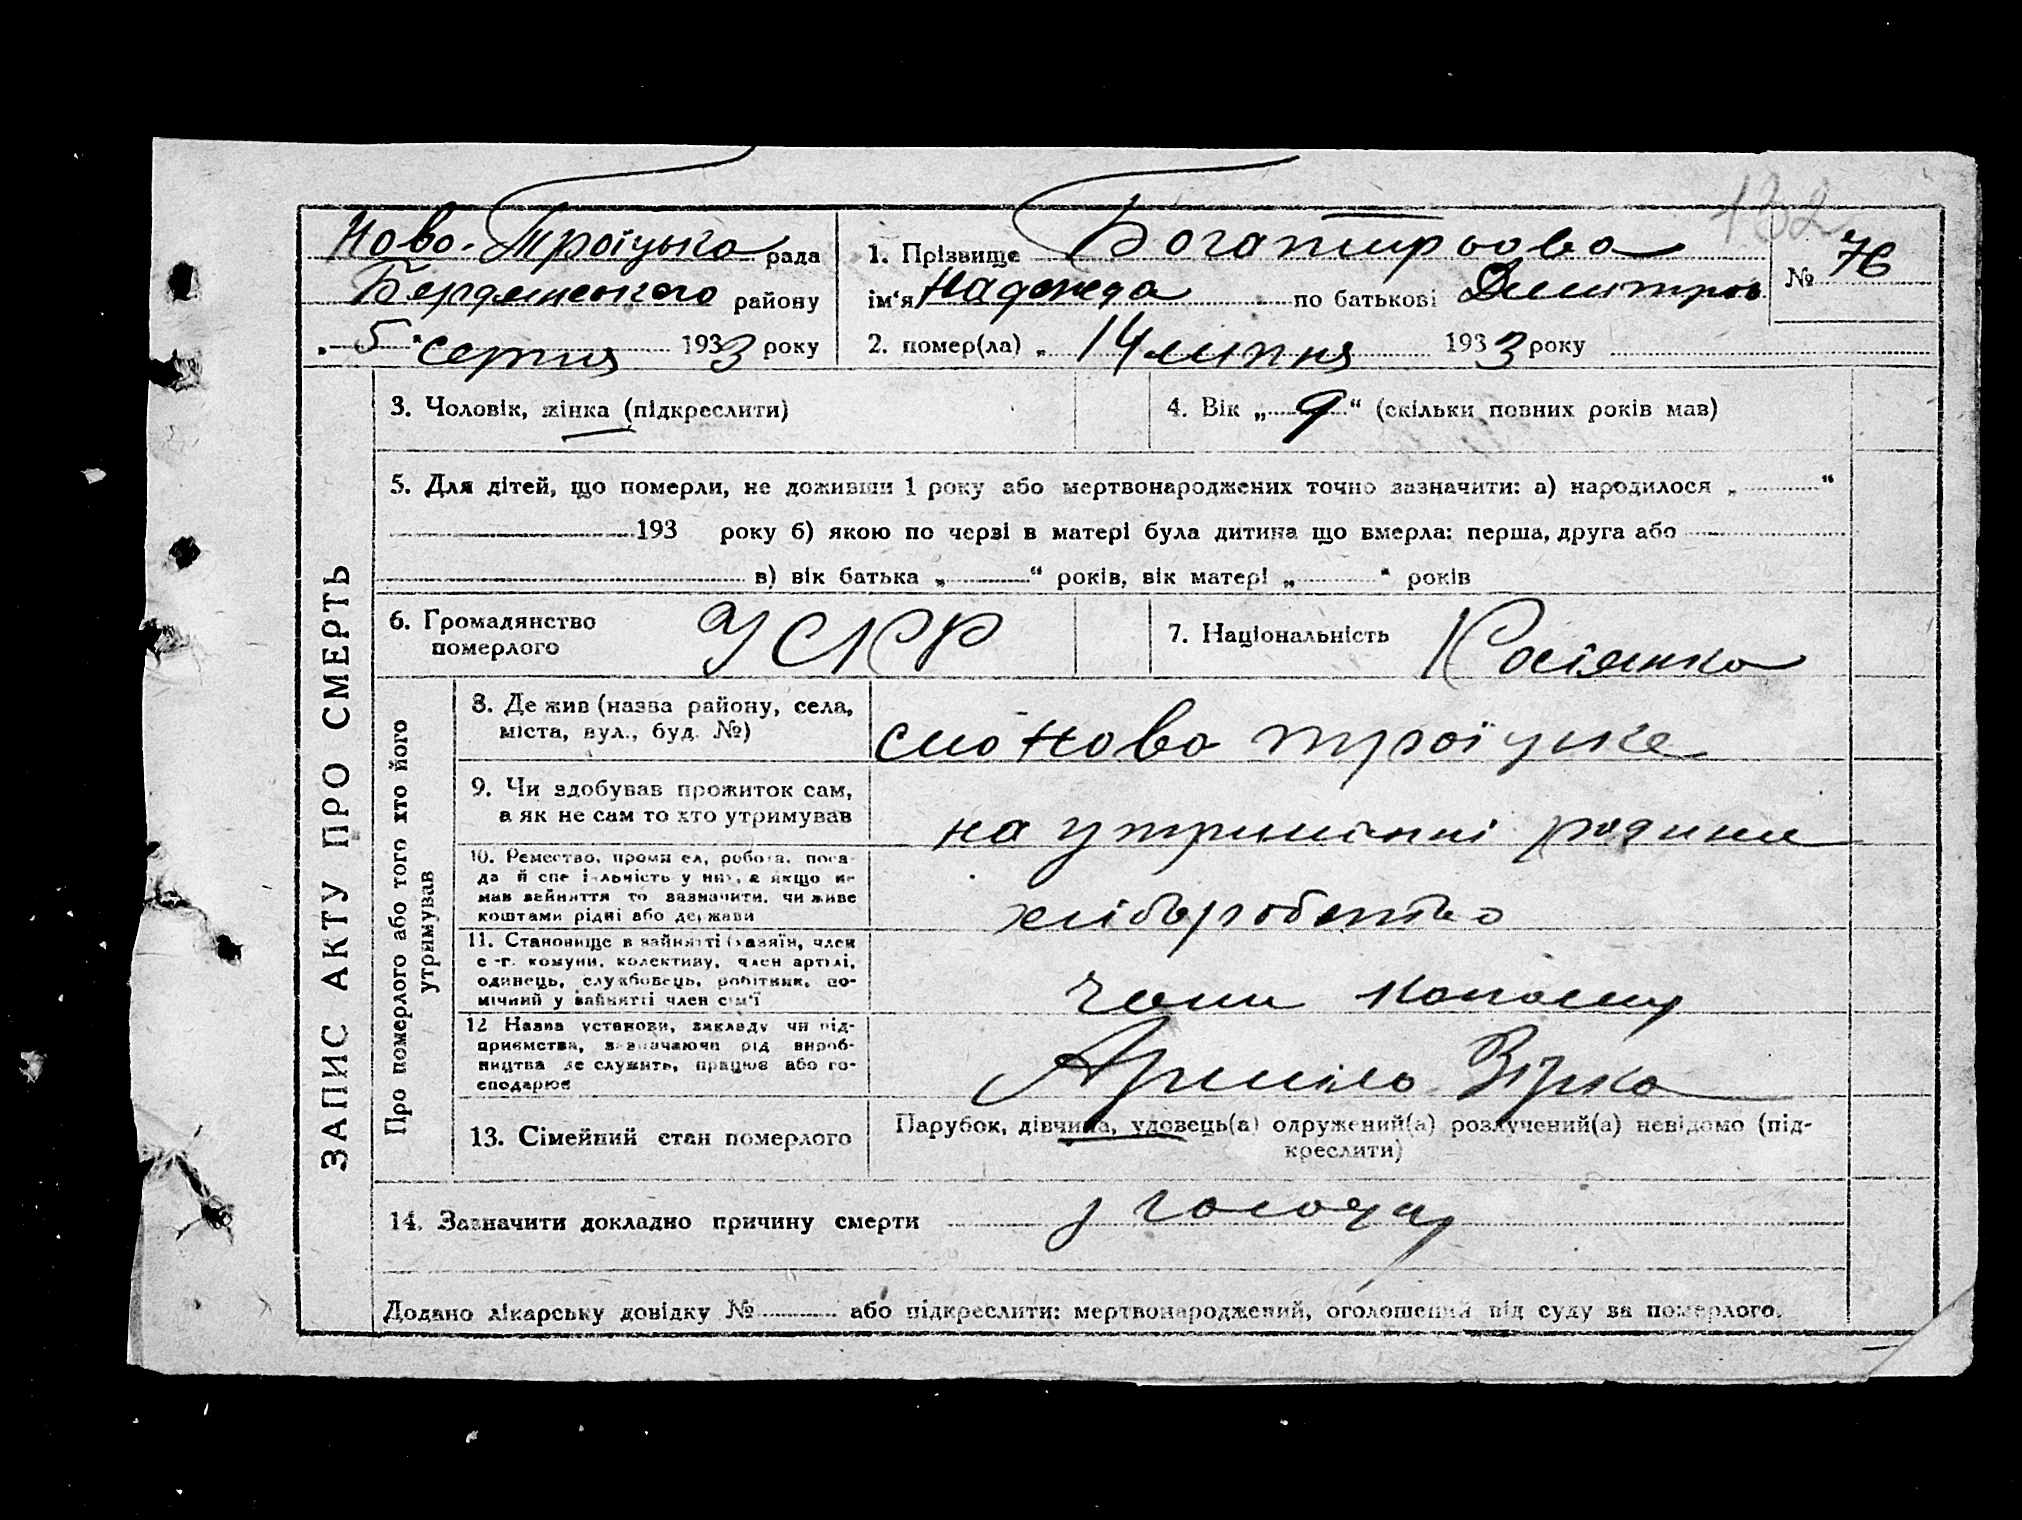 132
Ново-Троїцька рада
Бердянського району
„ 5 “ серпня 1933 року
1. Прізвище Богатирьова
ім‘я Надежда по батькові Дмитров
№ 76
2. помер(ла) „ 14 липня 1933 року
ЗАПИС АКТУ ПРО СМЕРТЬ
3. Чоловік, жінка (підкреслити)
4. Вік „ 9 “ (скільки повних років мав)
5. Для дітей, що померли, не доживши 1 року або мертвонароджених точно зазначити: а) народилося „ “
193 року б) якою по черзі в матері була дитина що вмерла: перша, друга або
в) вік батька „ “ років, вік матері „ “ років
6. Громадянство
померлого
УСРР
7. Національність Росіянка
Про померлого або того хто його
утримував
8. Де жив (назва району, села,
міста, вул., буд. №)
село Ново троїцьке
9. Чи здобував прожиток сам,
а як не сам то хто утримував
на утриманні родини
10. Ремество, промисел, робота, поса-
да й спеціяльність у них, а якщо не
мав зайняття то зазначити, чи живе
коштами рідні або держави
хліборобство
11. Становище в зайнятті (хазяїн, член
с.-г. комуни, колективу, член артілі,
одинець, службовець, робітник, по-
мічний у зайнятті член сім‘ї
член колгоспу
12 Назва установи, закладу чи під-
приємства, зазначаючи рід вироб-
ництва де служить, працює або го-
сподарює
Зірка
13. Сімейний стан померлого
Парубок, дівчина, удовець(а) одружений(а) розлучений(а) невідомо (під-
креслити)
14. Зазначити докладно причину смерти з голоду
Додано лікарську довідку № або підкреслити: мертвонароджений, оголошений від суду за померлого.